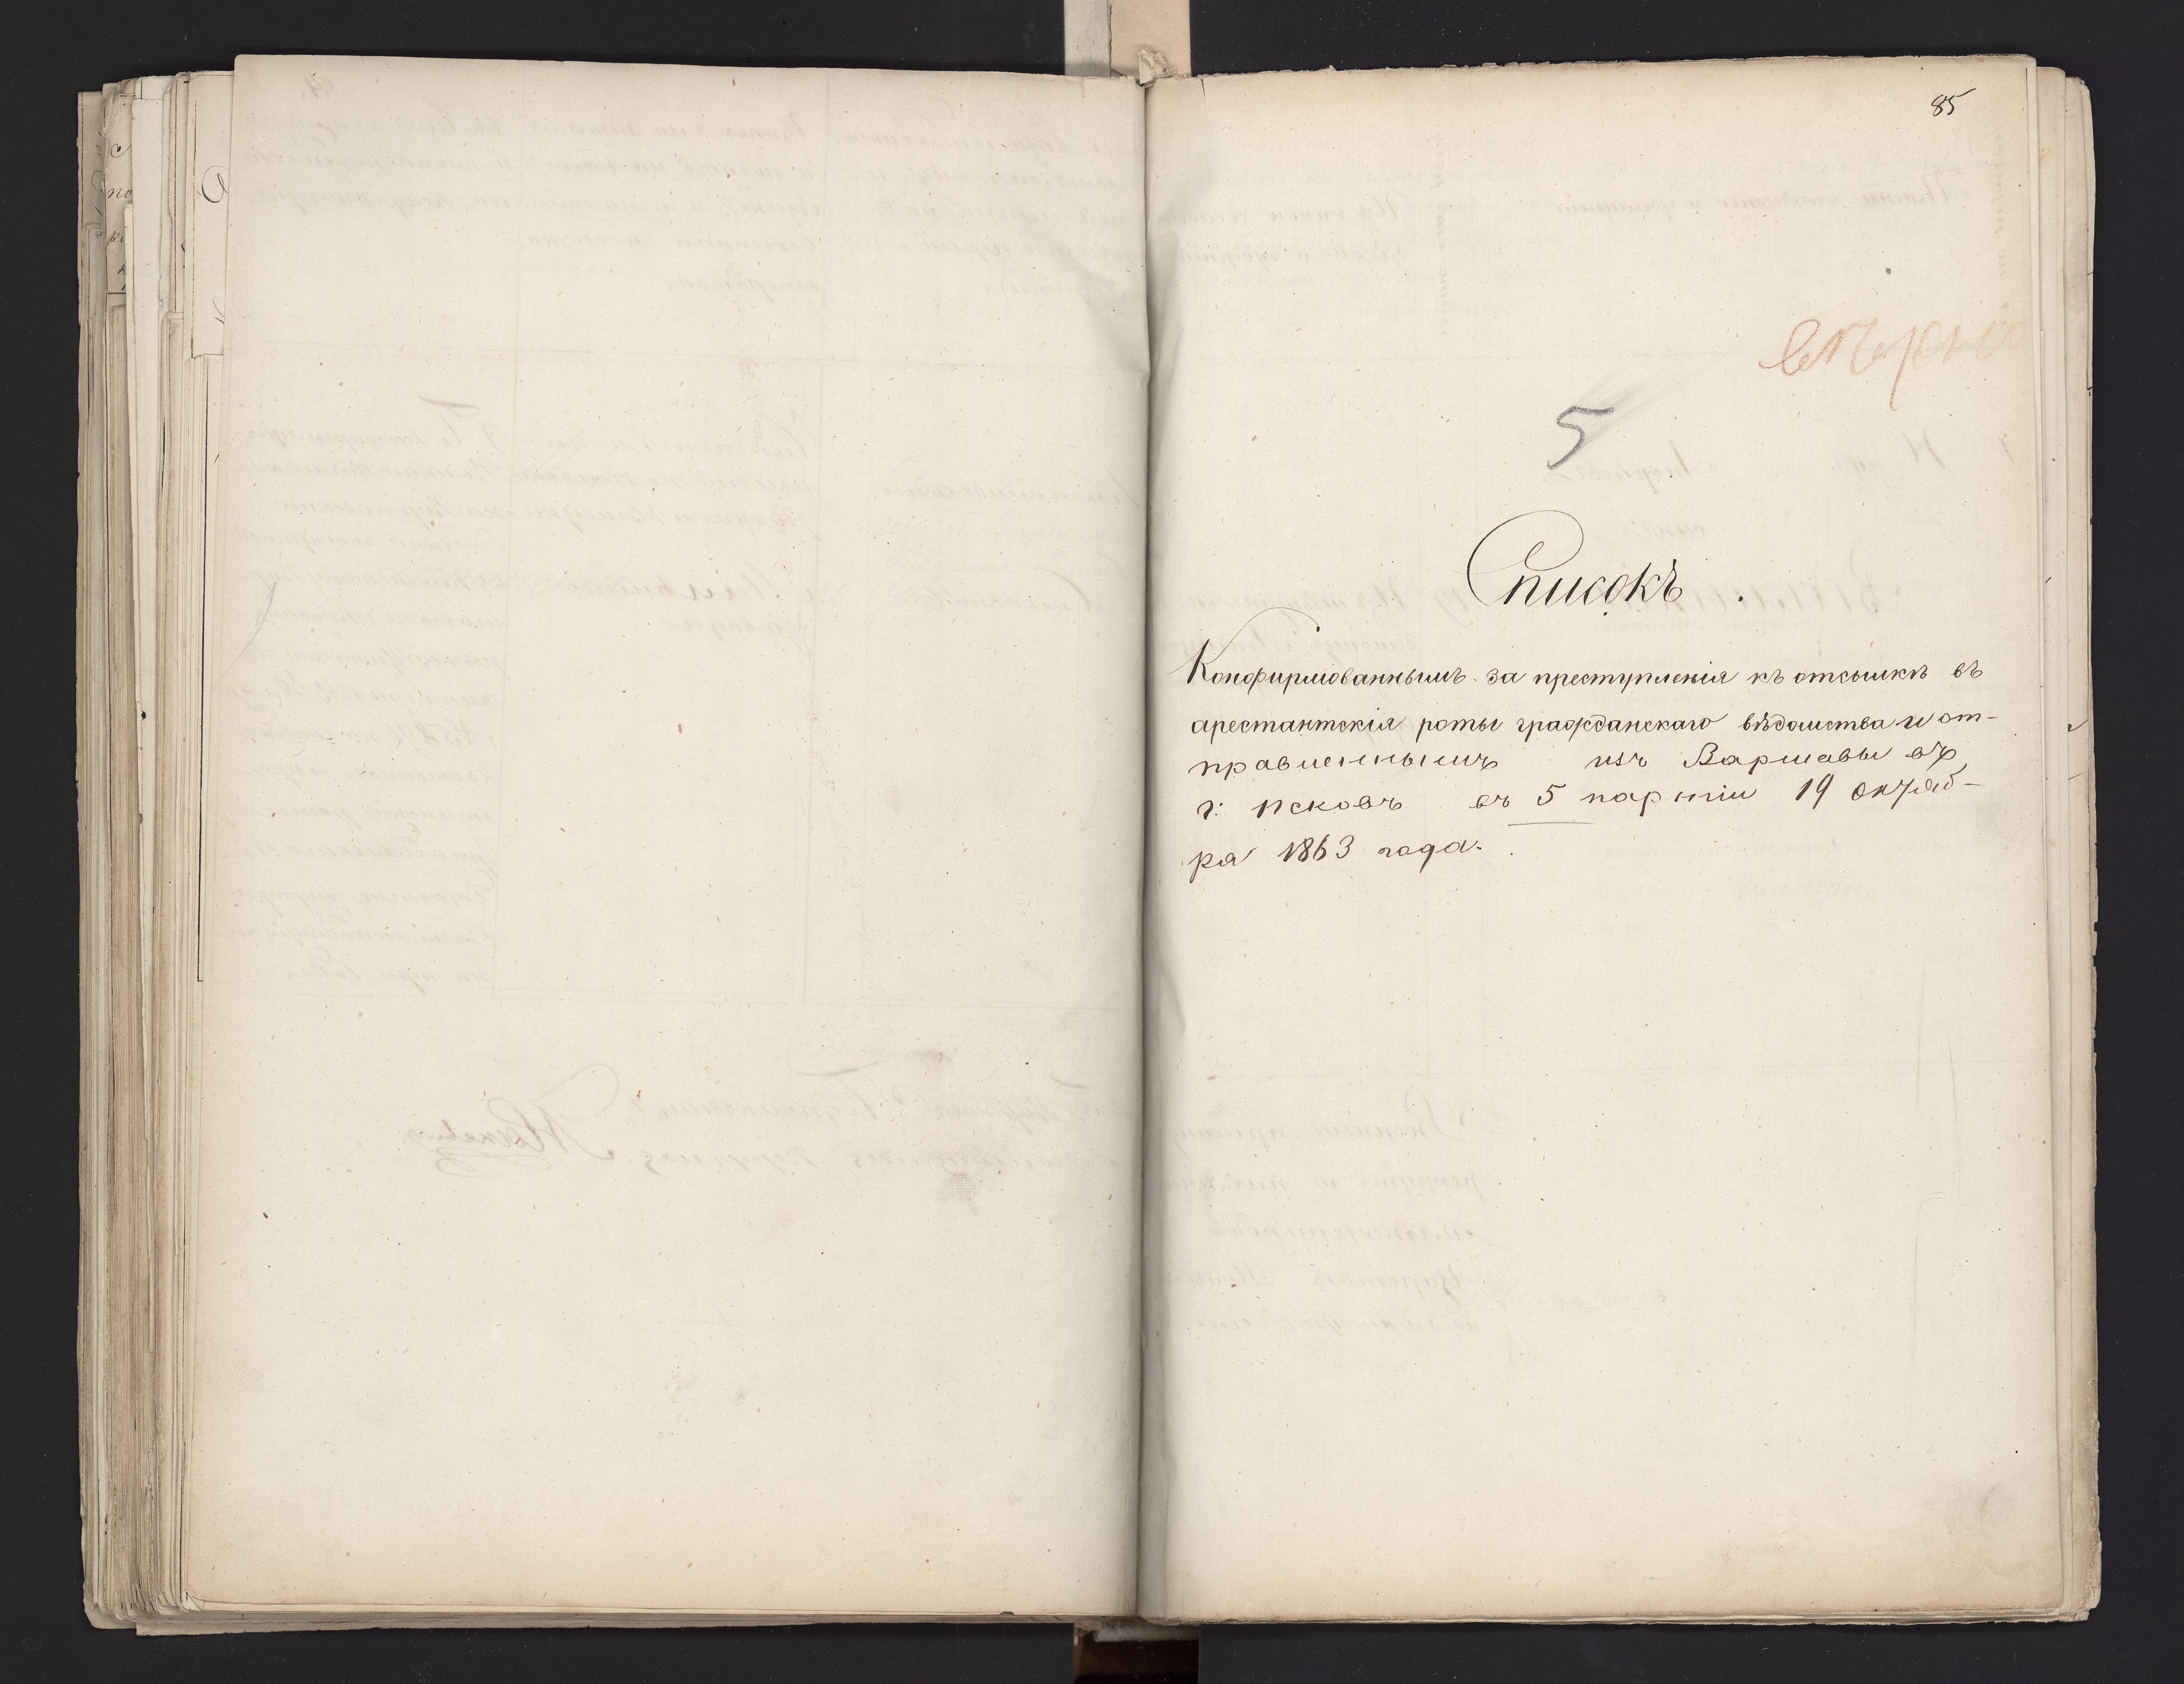 85
вѣрно
5
Списокъ.
Конфирмованнымъ за преступленія къ отсылкѣ въ
арестантскія роты гражданскаго вѣдомства и от-
правленнымъ изъ Варшавы въ
г: Псковъ въ 5 партіи 19 октяб-
ря 1863 года.